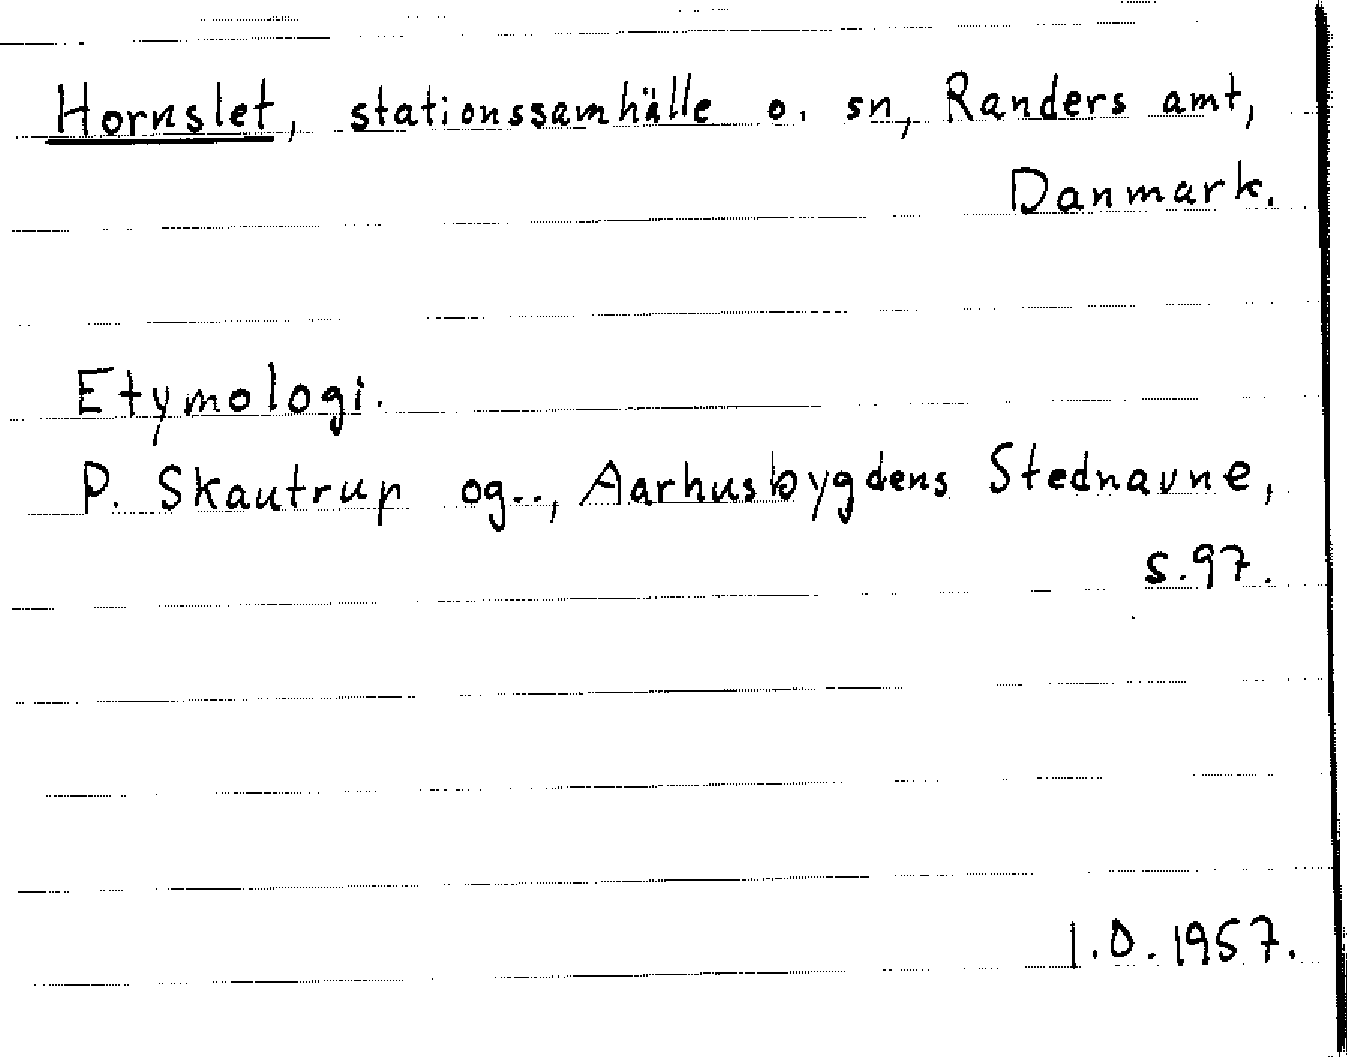 Hornslet, stationssamhälle o. sn, Randers amt,
Danmark.
Etymologi.
P. Skautrup og.., Aarhusbygdens Stednavne,
s.97.
I.O.1957.